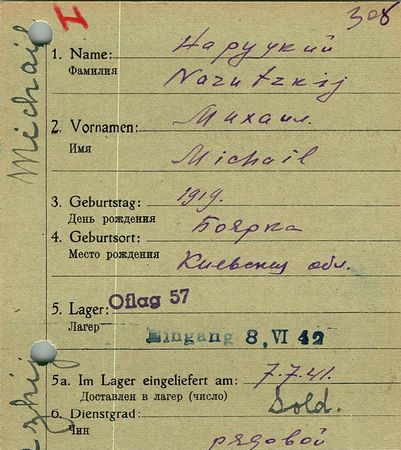 308
I
Michail
1. Name: Наруцкий
Фамилия
Narutzkij
2. Vornamen: Михаил.
Имя
Michail
3. Geburtstag: 1919.
День рождения
4. Geburtsort: Боярка
Место рождения
Киевская обл.
5. Lager: Oflag 57
Лагер
Eingang 8. VI 42
5a. Im Lager eingeliefert am: 7.7.41.
Доставлен в лагер (число)
6. Dienstgrad: Sold.
Чин
рядовой